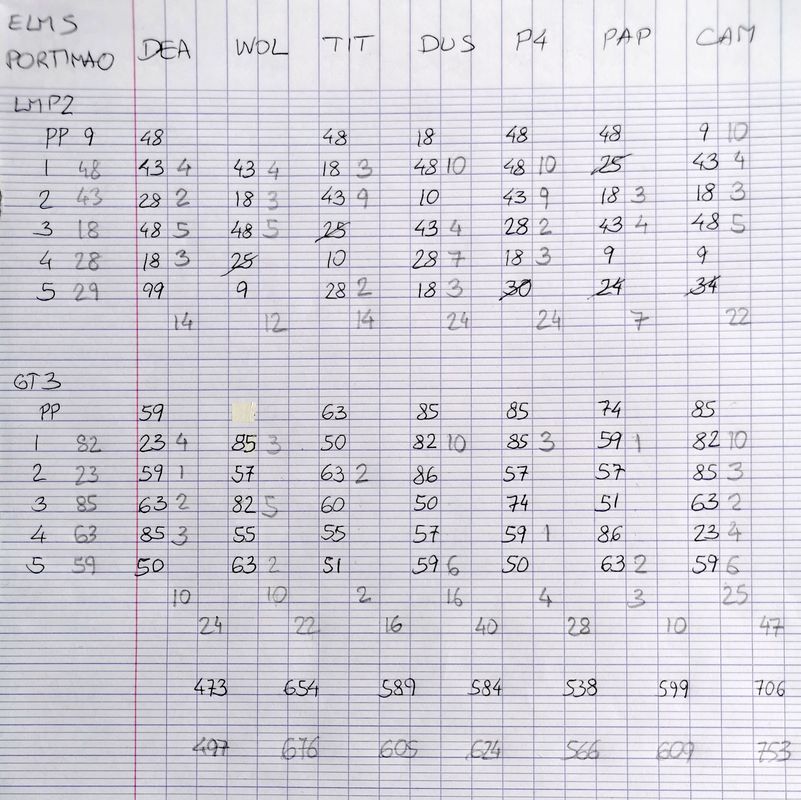 ELMS
PORTIMAO DEA WOL TIT DUS P4 PAP CAM
LMP2
PP 9 48 48 18 48 48 9 10
1 48 43 4 43 4 18 3 48 10 48 10 25 43 4
2 43 28 2 18 3 43 9 10 43 9 18 3 18 3
3 18 48 5 48 5 25 43 4 28 2 43 4 48 5
4 28 18 3 25 10 28 7 18 3 9 9
5 29 99 9 28 2 18 3 30 24 34
14 12 14 24 24 7 22
GT3
PP 59 63 85 85 74 85
1 82 23 4 85 3 50 82 10 85 3 59 1 82 10
2 23 59 1 57 63 2 86 57 57 85 3
3 85 63 2 82 5 60 50 74 51 63 2
4 63 85 3 55 55 57 59 1 86 23 4
5 59 50 63 2 51 59 6 50 63 2 59 6
10 10 2 16 4 3 25
24 22 16 40 28 10 47
473 654 589 584 538 599 706
497 676 605 624 566 609 753